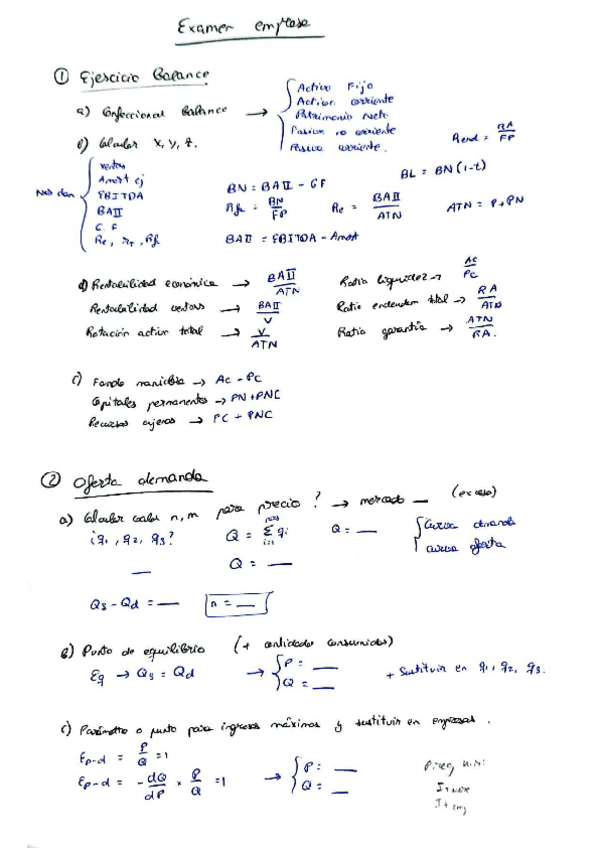 Examen empresa
① Ejercicio Balance
a) Confeccionar Balance → { Activo Fijo
Activo corriente
Patrimonio Neto
Pasivo no corriente
Pasivo corriente.
b) Calcular x, y, z.
Rend = RA/FP
Nos dan { Ventas
Amort ej
EBITDA
BAII
G.F
Re, rt, Rf
BN = BAII - GF
BL = BN (1-t)
Rf = BN/FP
Re = BAII/ATN
ATN = P + PN
BAII = EBITDA - Amort
d) Rentabilidad económica → BAII/ATN
Ratio liquidez → AC/PC
Rentabilidad ventas → BAII/V
Ratio endeudam total → RA/ATN
Rotación activo total → V/ATN
Ratio garantía → ATN/RA.
c) Fondo maniobra → AC - PC
Capitales permanentes → PN + PNC
Recursos ajenos → PC + PNC
② Oferta demanda
a) Calcular valor n, m para precio ? → mercado — (exceso)
¿q1, q2, q3?
Q = Σ qi
i=1
Q = —
{ Curva demanda
curva oferta
Q = —
—
Qs - Qd = —
n = —
b) Punto de equilibrio (+ cantidades consumidas)
Eq → Qs = Qd → { P = —
Q = —
+ Sustituir en q1, q2, q3.
c) Parámetro o punto para ingresos máximos y sustituir en empresas.
Ep-d = P/Q = 1
Ep-d = -dQ/dP × P/Q = 1 → { P = —
Q = —